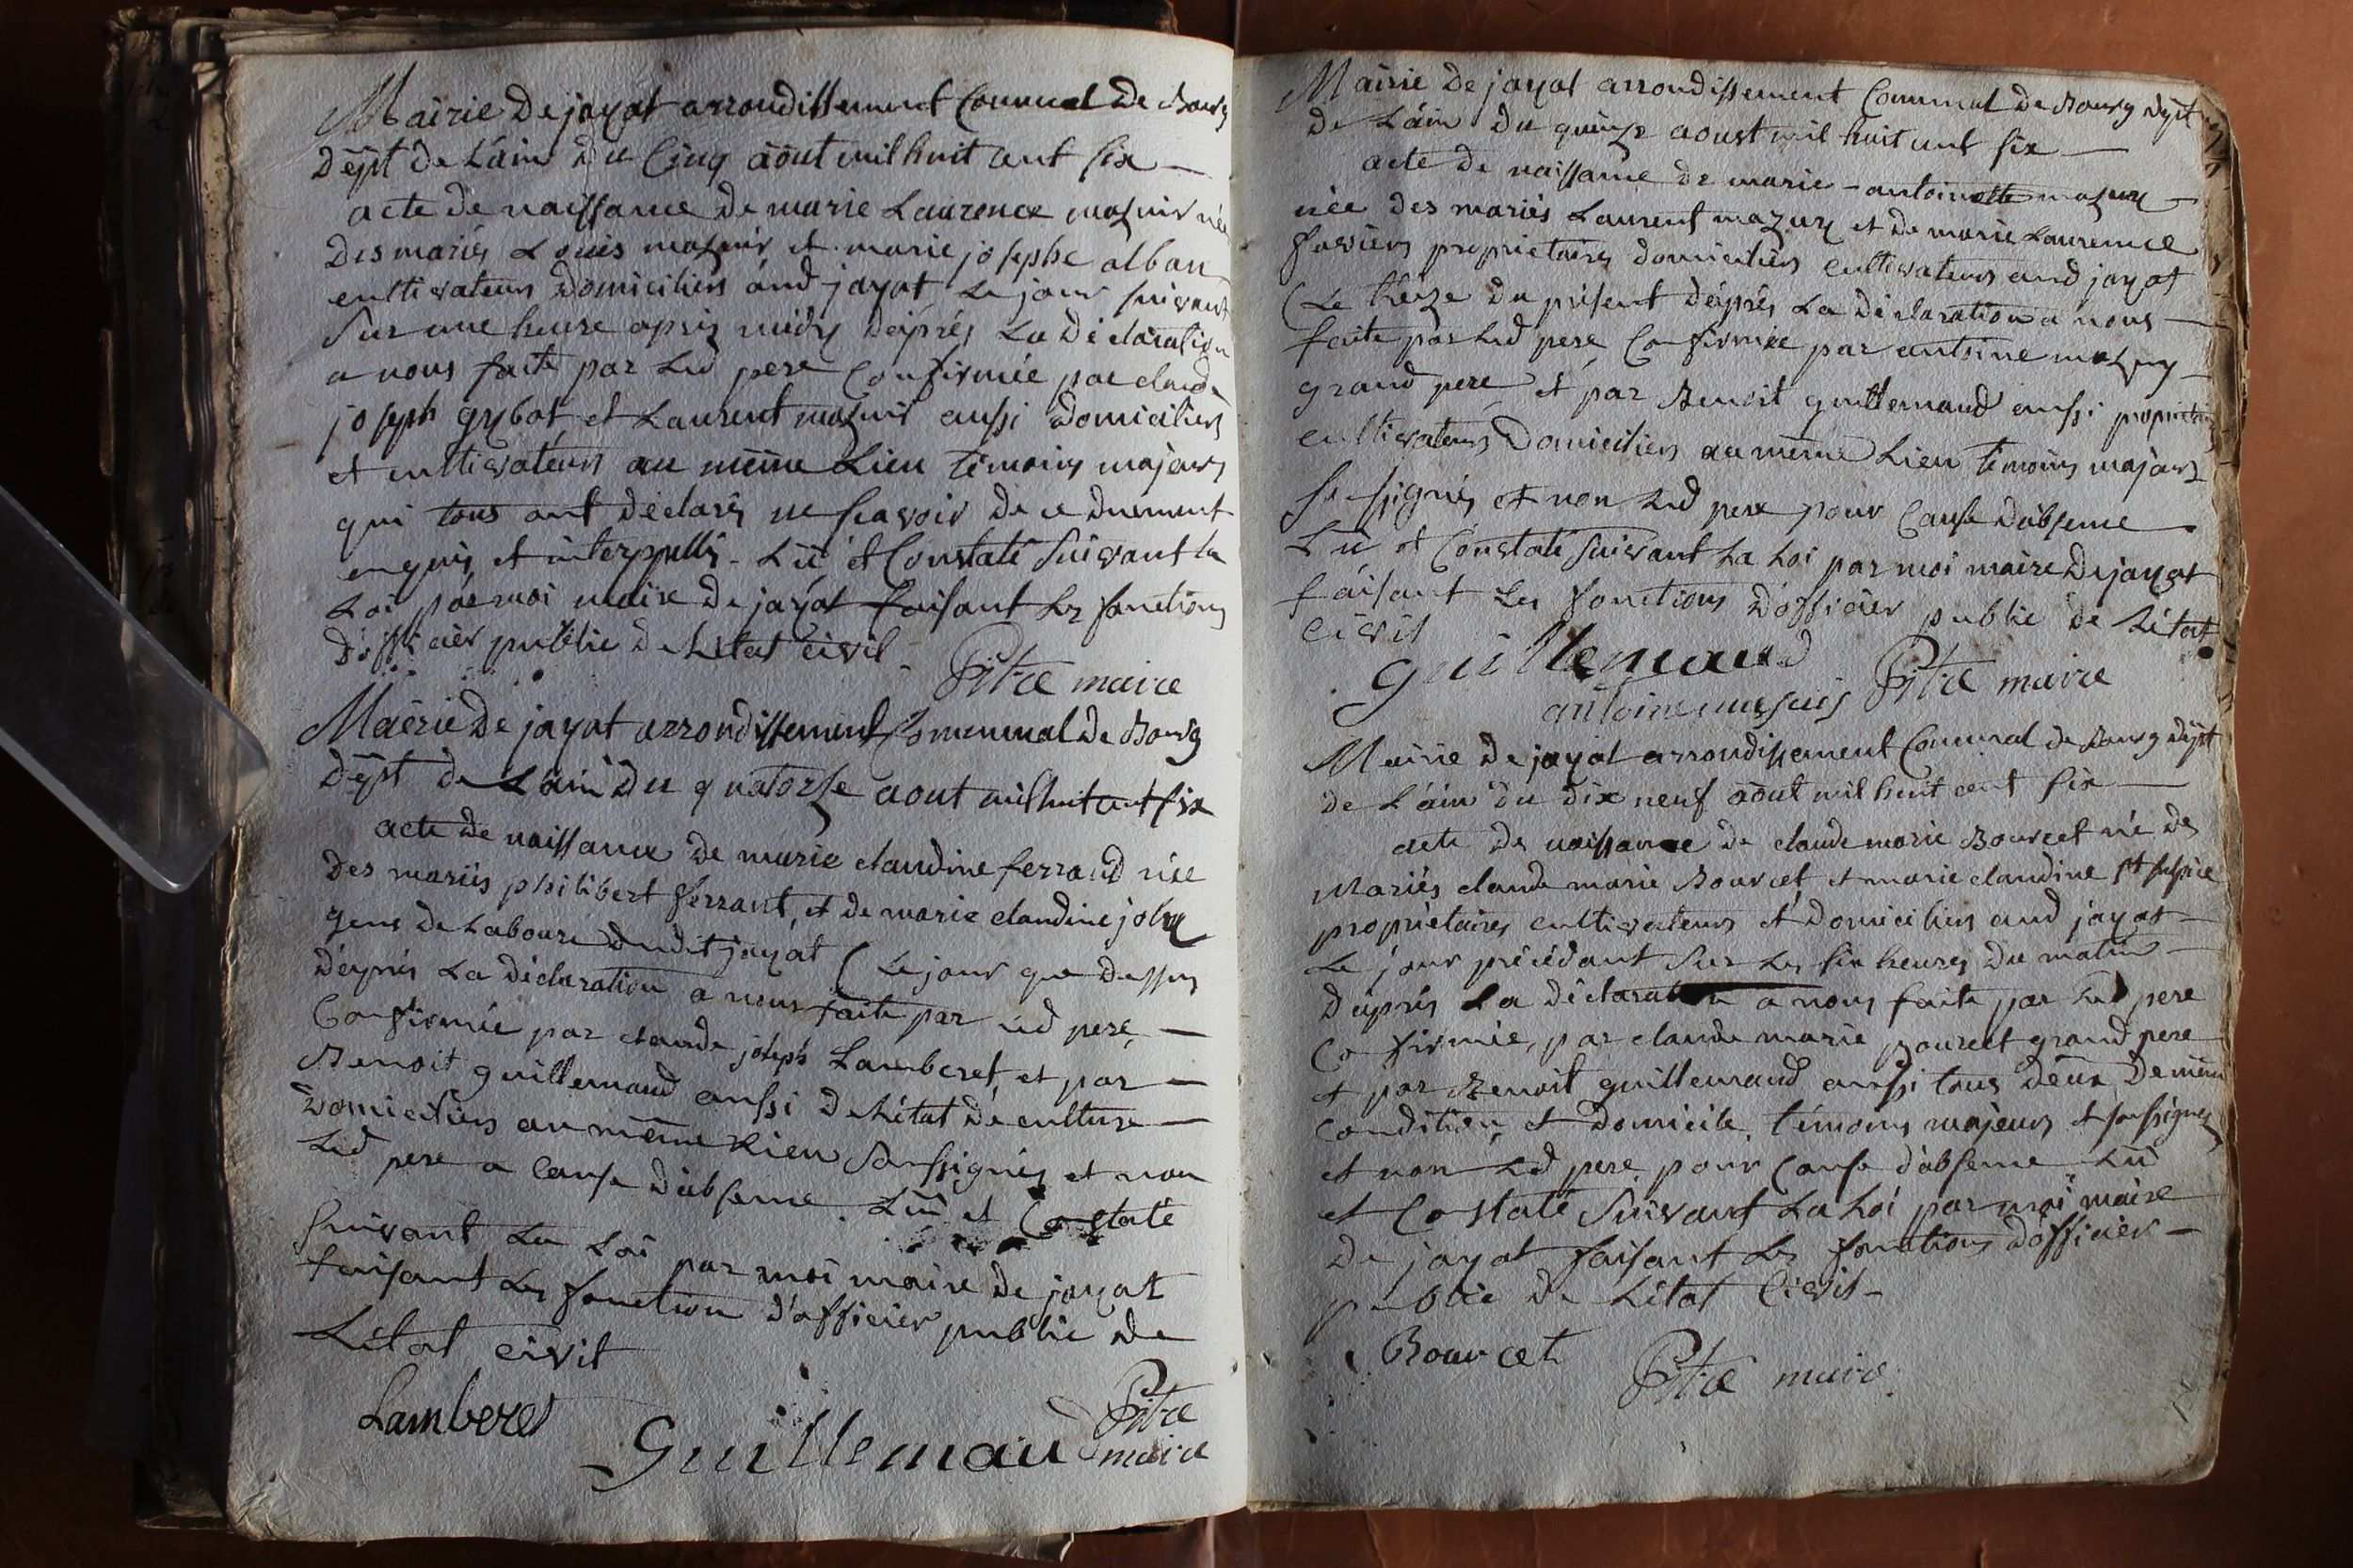 Mairie De jayat arrondissement Communal De Bourg
Dept de L'ain Du Cinq aout mil huit cent six —
acte de naissance De marie Laurence mazuir née
Des mariés Louis mazuir et marie josephe alban
cultivateurs Domiciliés aud jayat Le jour suivant
Sur une heure apres midy D'après La Déclaration
a nous faite par Led pere Confirmée par claude
joseph gybot et Laurent mazuir aussi Domiciliés
et cultivateurs au même Lieu témoins majeurs
qui tous ont Déclarés ne scavoir De ce Duement
enquis et interppellés - Lü et Constaté Suivant La
Loi par moi maire De jayat faisant Les fonctions
D'officier public De L'état civil -
Pitre maire
Mairie De jayat arrondissement Communal De Bourg
Dept de L'ain Du quatorse aout mil huit cent six
acte De naissance De marie claudine ferrand née
Des mariés philibert ferrant, et de marie claudine joly
gens De Laboure dudit jayat (Le jour que Dessus
D'après La Déclaration a nous faite par Led pere, —
Confirmée par claude joseph Lamberet, et par —
Benoit guillemaud aussi De L'état De culture —
Domiciliés au même Lieu Soussignés et non
Led pere a Cause D'absence. Lü et Constaté
Suivant La Loi par moi maire De jayat
faisant Les fonction d'officier public De
L'état civil
Lamberet
Guillemaud
Pitre
maire
Mairie De jayat arrondissement Communal De Bourg Dept
De L'ain Du quinze aoust mil huit cent six —
acte De naissance De marie - antoinette mazuy —
née Des mariés Laurent mazuy et De marie Laurence
proprietaires Domiciliés cultivateurs aud jayat
(Le treize Du présent D'après La Déclaration a nous —
faite par Led pere Confirmée par antoine mazuy —
grand pere et par Benoit guillemaud aussi propriétaires
cultivateurs Domiciliés au même Lieu témoins majeurs
Soussignés et non Led pere pour Cause D'absence
Lü et Constaté Suivant La Loi par moi maire De jayat
faisant Les fonctions D'officier public De L'état
civil
guillemaud
antoine Pitre maire
Mairie De jayat arrondissement Communal De Bourg Dept
De L'ain Du Dix neuf aout mil huit cent six —
acte De naissance De claude marie Bourcet né Des
Mariés claude marie Bourcet et marie claudine st sulpice
propriétaires cultivateurs et Domiciliés aud jayat —
Le jour précédant Sur Les six heures Du matin —
D'après La Déclaration a nous faite par Led pere
Confirmée, par claude marie Bourcet grand pere
et par Benoit guillemaud aussi tous Deux De même
Condition et Domicile, témoins majeurs et soussignés
et non Led pere pour Cause d'absence Lü
et Constaté Suivant La Loi par moi maire
De jayat faisant Les fonctions D'officier —
public De L'état Civil -
Bourcet
Pitre maire